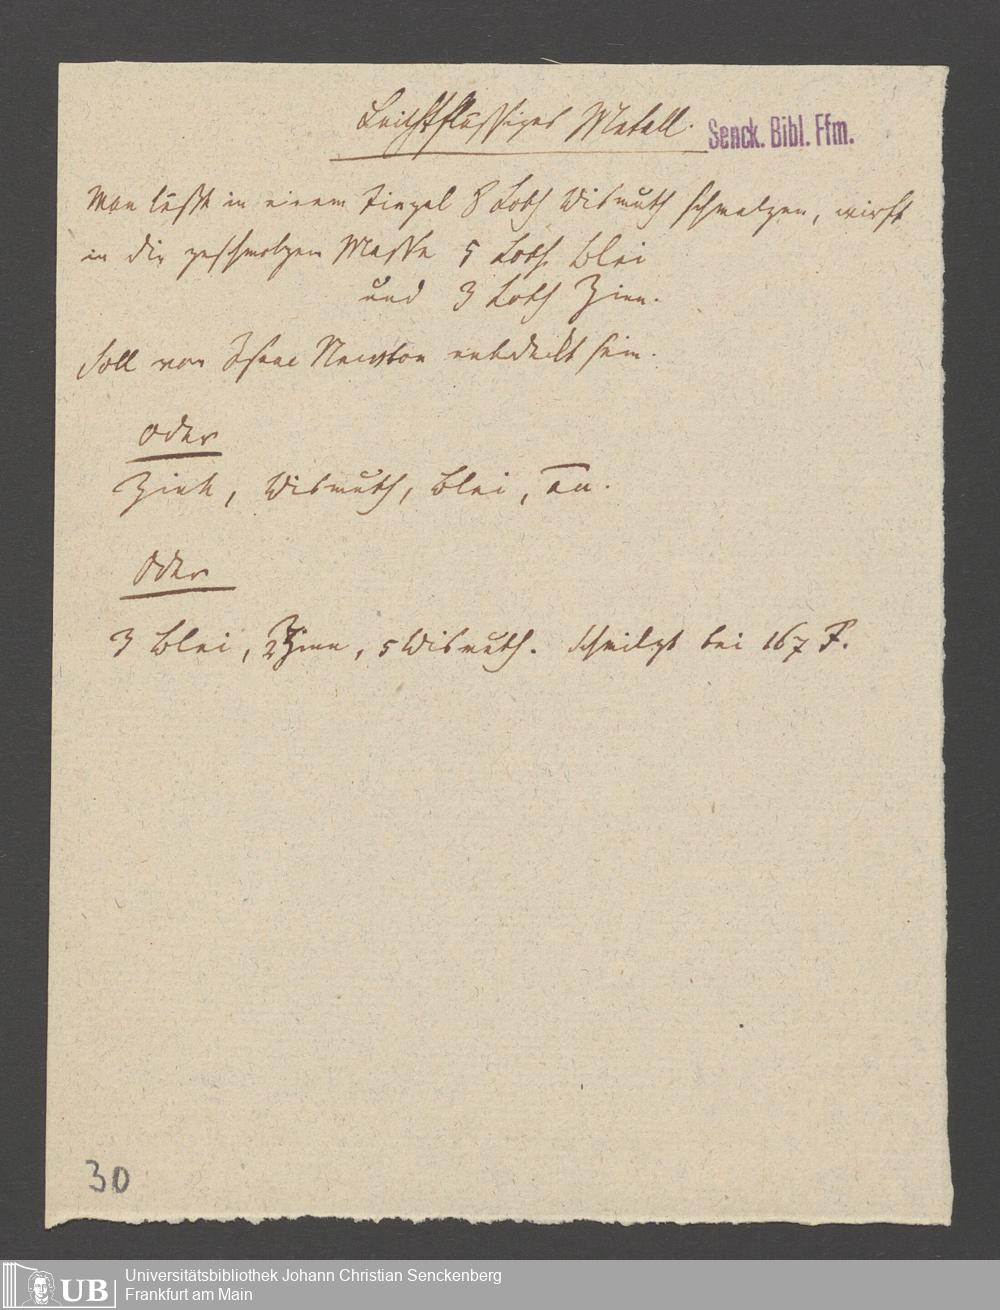 Leichtflüssiges Metall.
Senck. Bibl. Ffm.
Man läßt in einem Tiegel 8 Loth Wismuth schmelzen, wirft
in die geschmolzen Masse 5 Loth Blei
und 3 Loth Zinn.
Soll von Isaac Newton entdeckt sein.
oder
Zink, Wismuth, Blei, āā.
Oder
3 Blei, 2 Zinn, 5 Wismuth. Schmilzt bei 167 F.
30
UB
Universitätsbibliothek Johann Christian Senckenberg
Frankfurt am Main